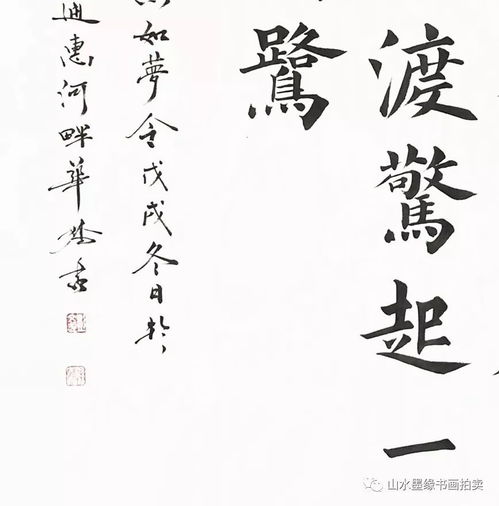 渡驚起一
鷺
如夢令戊戌冬日於
通惠河畔華書
山水墨缘书画拍卖